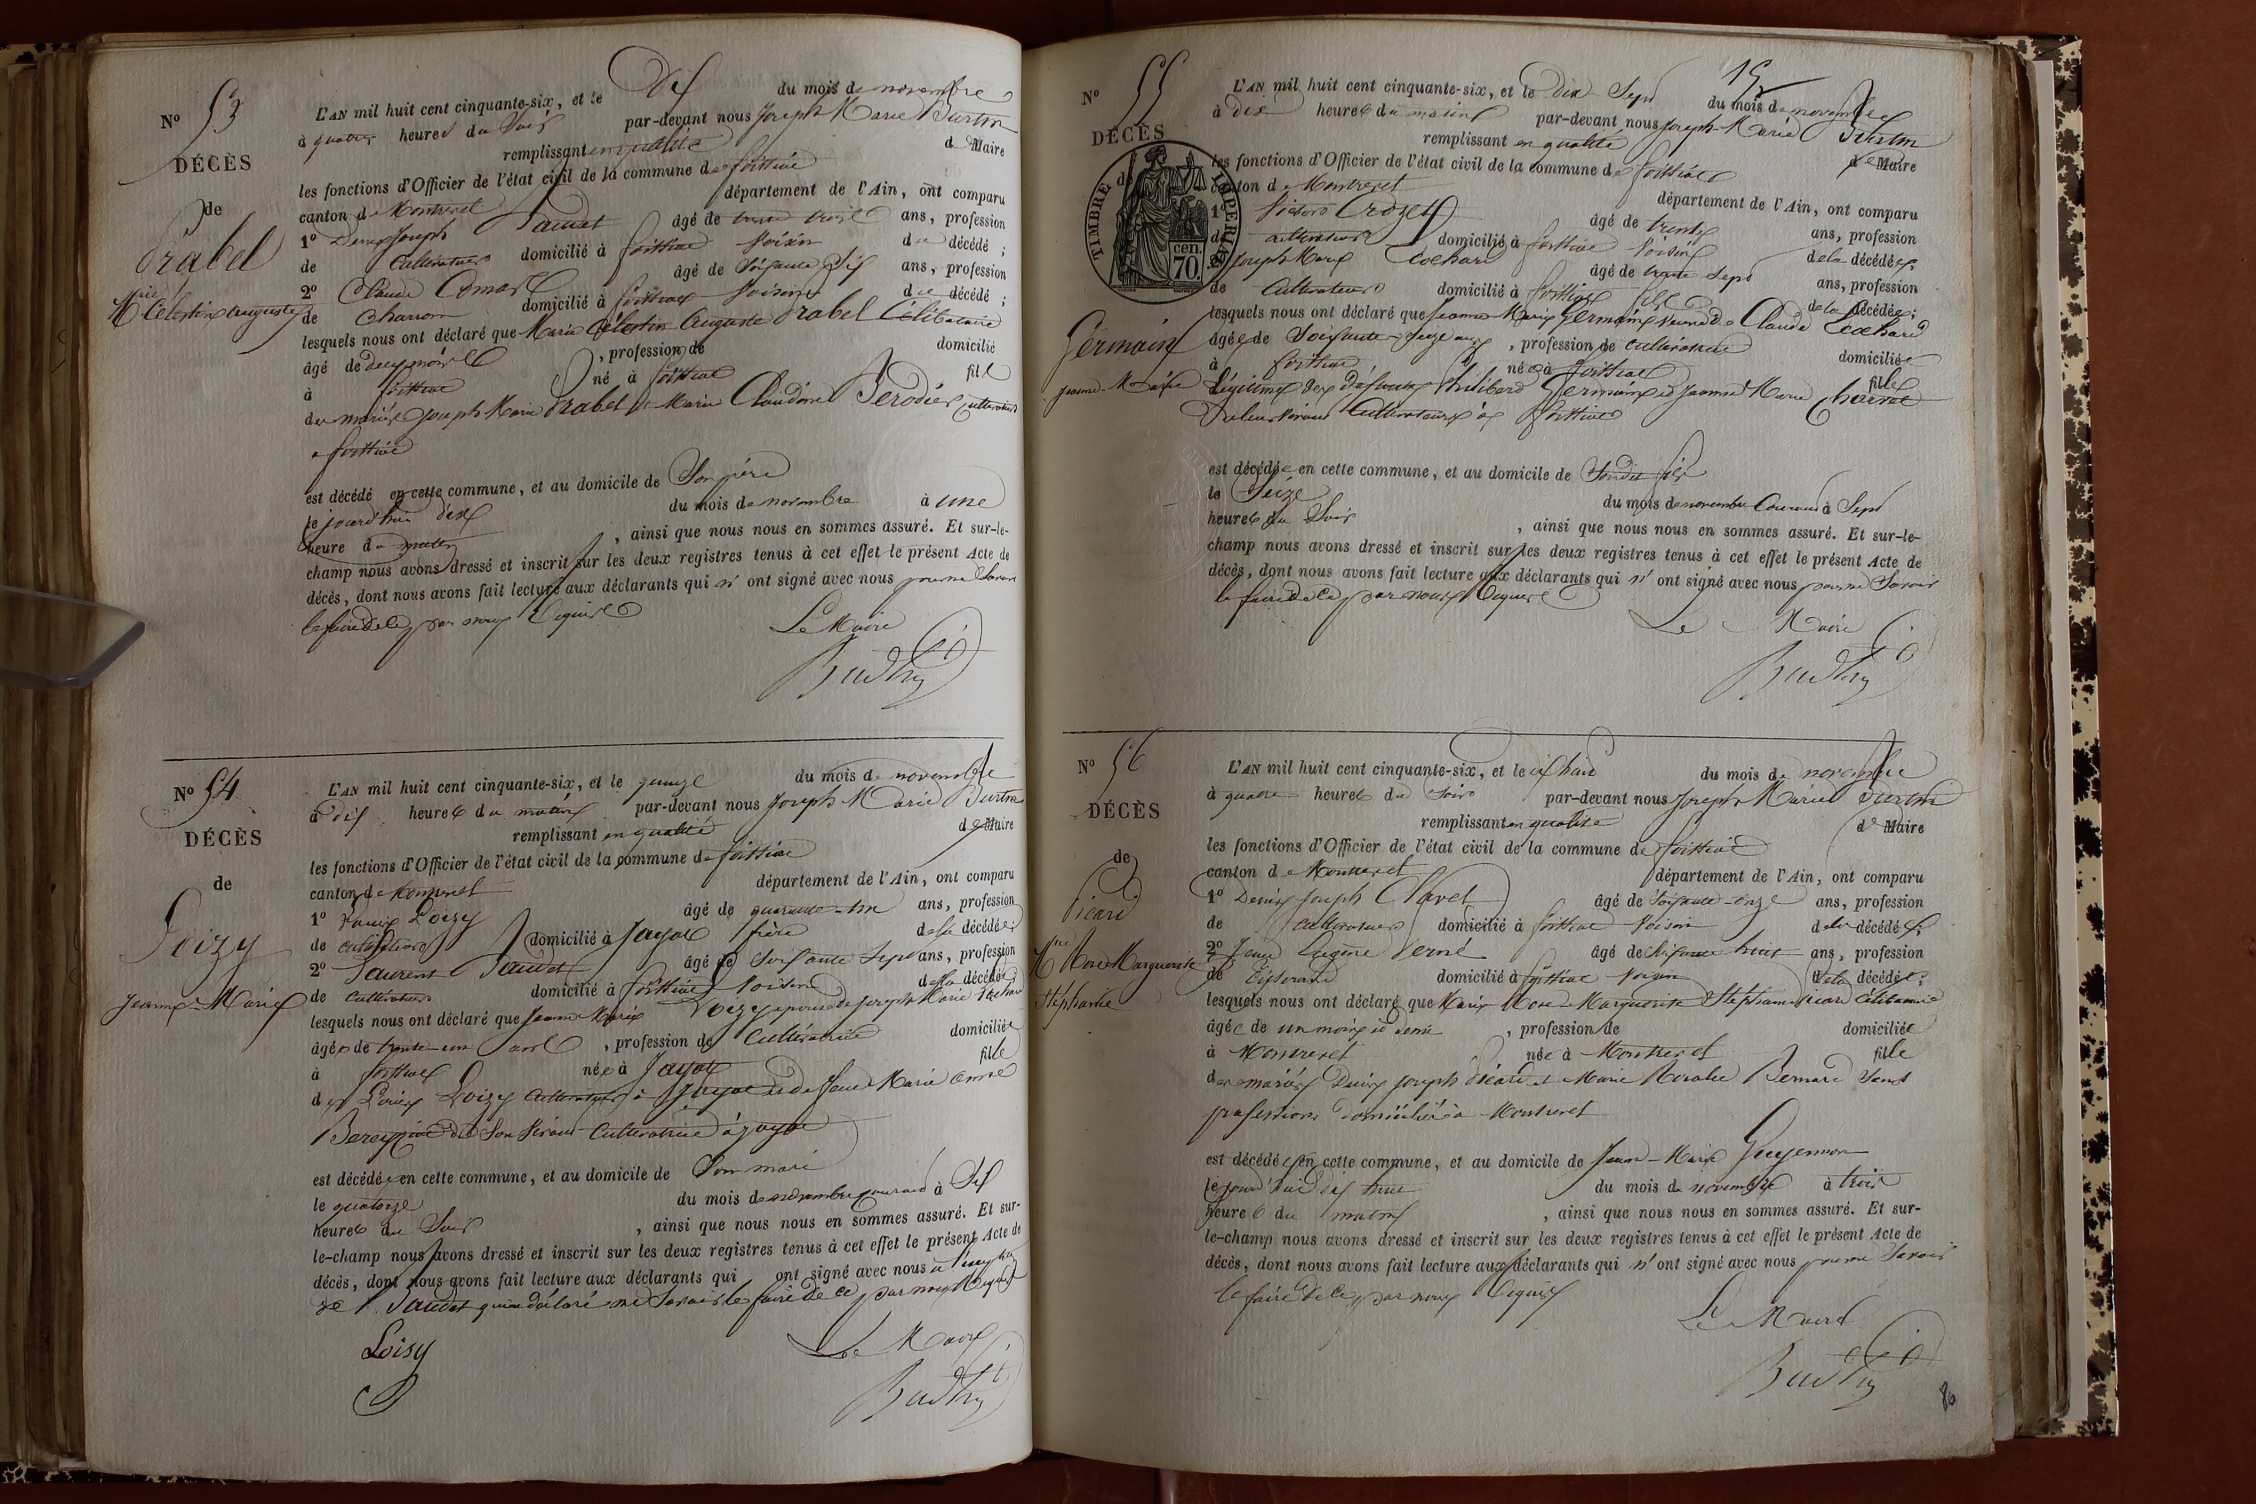 N° 53
DÉCÈS
de
Prabel
Mie Célestin Auguste
L'AN mil huit cent cinquante-six, et le Dix du mois de novembre
à quatre heures du Soir par-devant nous Joseph Marie Burtin
remplissant en qualité de Maire
les fonctions d'Officier de l'état civil de la commune de foissiat
canton de Montrevel département de l'Ain, ont comparu
1° Denis Joseph Paudet âgé de trente trois ans, profession
de Cultivateur domicilié à foissiat Voisin du décédé ;
2° Claude Comas âgé de Soixante Six ans, profession
de Charron domicilié à foissiat Voisin du décédé ;
lesquels nous ont déclaré que Marie Célestin Auguste Prabel Célibataire
âgé de deux mois , profession de domicilié
à foissiat né à foissiat fils
des mariés Joseph Marie Prabel et Marie Claudine Perodier cultivateurs
à foissiat
est décédé en cette commune, et au domicile de Son père
le jourd'hui dix du mois de novembre à une
heure du matin , ainsi que nous nous en sommes assuré. Et sur-le-
champ nous avons dressé et inscrit sur les deux registres tenus à cet effet le présent Acte de
décès, dont nous avons fait lecture aux déclarants qui n' ont signé avec nous pour ne Savoir
le faire de ce par nous Requis
Le Maire
N° 54
DÉCÈS
de
Loizy
Jeanne-Marie
L'AN mil huit cent cinquante-six, et le quinze du mois de novembre
à dix heures du matin par-devant nous Joseph Marie Burtin
remplissant en qualité de Maire
les fonctions d'Officier de l'état civil de la commune de foissiat
canton de Montrevel département de l'Ain, ont comparu
1° Louis Loizy âgé de quarante-un ans, profession
de cultivateur domicilié à Jayat frère de la décédée ;
2° Laurent Paudet âgé de Soixante Sept ans, profession
de cultivateur domicilié à foissiat Voisin de la décédée ;
lesquels nous ont déclaré que Jeanne Marie Loizy épouse de Joseph Marie
âgée de trente-un ans , profession de Cultivatrice domiciliée
à foissiat née à Jayat fille
de Louis Loizy Cultivateur à Jayat et de Jeanne Marie
de Son Vivant Cultivatrice à Jayat
est décédée en cette commune, et au domicile de Son mari
le quatorze du mois de novembre courant à Six
heures du Soir , ainsi que nous nous en sommes assuré. Et sur-
le-champ nous avons dressé et inscrit sur les deux registres tenus à cet effet le présent Acte de
décès, dont nous avons fait lecture aux déclarants qui ont signé avec nous à l'exception
de Paudet qui a déclaré ne Savoir le faire de ce par nous Requis
Loisy Le Maire
N° 55
DÉCÈS
de
TIMBRE IMPERIAL
70 cen.
Germain
Jeanne-Marie
15
L'AN mil huit cent cinquante-six, et le dix Sept du mois de novembre
à dix heures du matin par-devant nous Joseph-Marie Burtin
remplissant en qualité de Maire
les fonctions d'Officier de l'état civil de la commune de foissiat
canton de Montrevel département de l'Ain, ont comparu
1° Victor Crozet âgé de trente ans, profession
de cultivateur domicilié à foissiat Voisin de la décédée ;
Joseph Marie âgé de trente Sept ans, profession
de Cultivateur domicilié à foissiat fils de la décédée ;
lesquels nous ont déclaré que Jeanne-Marie Germain veuve de Claude
âgée de Soixante-Seize ans , profession de cultivatrice domiciliée
à foissiat née à foissiat fille
légitime des défunts Philibert Germain et Jeanne Marie
De leur Vivant Cultivateurs à foissiat
est décédée en cette commune, et au domicile de Son dit fils
le Seize du mois de novembre Courant à Sept
heures du Soir , ainsi que nous nous en sommes assuré. Et sur-le-
champ nous avons dressé et inscrit sur les deux registres tenus à cet effet le présent Acte de
décès, dont nous avons fait lecture aux déclarants qui n' ont signé avec nous pour ne Savoir
le faire de ce par nous Requis
Le Maire
N° 56
DÉCÈS
de
Picard
Mie Rose Marguerite
Stéphanie
L'AN mil huit cent cinquante-six, et le dix huit du mois de novembre
à quatre heures du Soir par-devant nous Joseph Marie Burtin
remplissant en qualité de Maire
les fonctions d'Officier de l'état civil de la commune de foissiat
canton de Montrevel département de l'Ain, ont comparu
1° Denis Joseph Clavel âgé de Soixante-onze ans, profession
de cultivateur domicilié à foissiat Voisin de la décédée ;
2° Jean Eugène Verné âgé de Soixante huit ans, profession
de Tisserand domicilié à foissiat Voisin de la décédée ;
lesquels nous ont déclaré que Marie Rose Marguerite Stéphanie Picard Célibataire
âgée de un mois et demi , profession de domiciliée
à Montrevel née à Montrevel fille
des mariés Denis Joseph Picard et Marie Rosalie Bernard Sans
professions domiciliés à Montrevel
est décédée en cette commune, et au domicile de Jean-Marie Guyennon
le jourd'hui dix huit du mois de novembre à trois
heures du matin , ainsi que nous nous en sommes assuré. Et sur-
le-champ nous avons dressé et inscrit sur les deux registres tenus à cet effet le présent Acte de
décès, dont nous avons fait lecture aux déclarants qui n' ont signé avec nous pour ne Savoir
le faire de ce par nous Requis
Le Maire
86